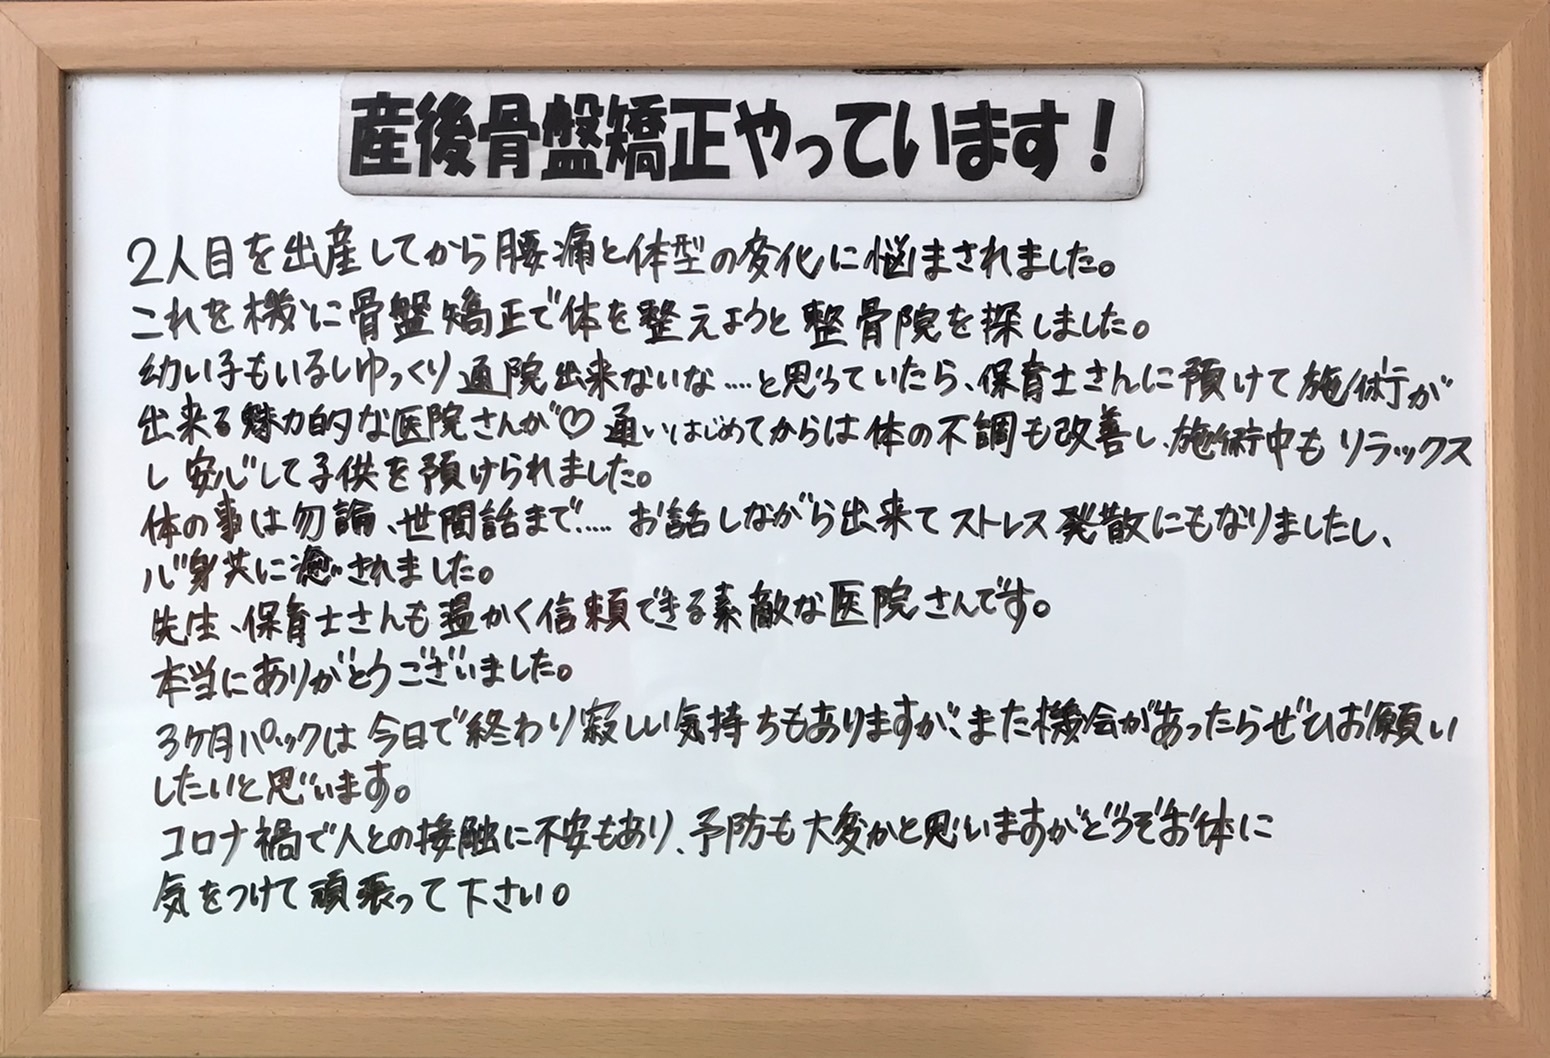 産後骨盤矯正やっています！
2人目を出産してから腰痛と体型の変化に悩まされました。
これを機に骨盤矯正で体を整えようと整骨院を探しました。
幼い子もいるしゆっくり通院出来ないな....と思っていたら、保育士さんに預けて施術が
出来る魅力的な医院さんが♡通いはじめてからは体の不調も改善し、施術中もリラックス
し安心して子供を預けられました。
体の事は勿論、世間話まで.....お話しながら出来てストレス発散にもなりましたし、
心身共に癒されました。
先生、保育士さんも温かく信頼できる素敵な医院さんです。
本当にありがとうございました。
3ケ月パックは今日で終わり寂しい気持ちもありますが、また機会があったらぜひお願い
したいと思います。
コロナ禍で人との接触に不安もあり、予防も大変かと思いますがどうぞお体に
気をつけて頑張って下さい。